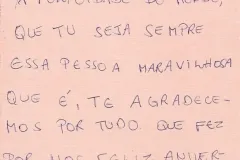 QUE TU SEJA SEMPRE
ESSA PESSOA MARAVILHOSA
QUE É, TE AGRADECE-
MOS POR TUDO QUE FEZ
POR NOS FELIZ ANIVER-